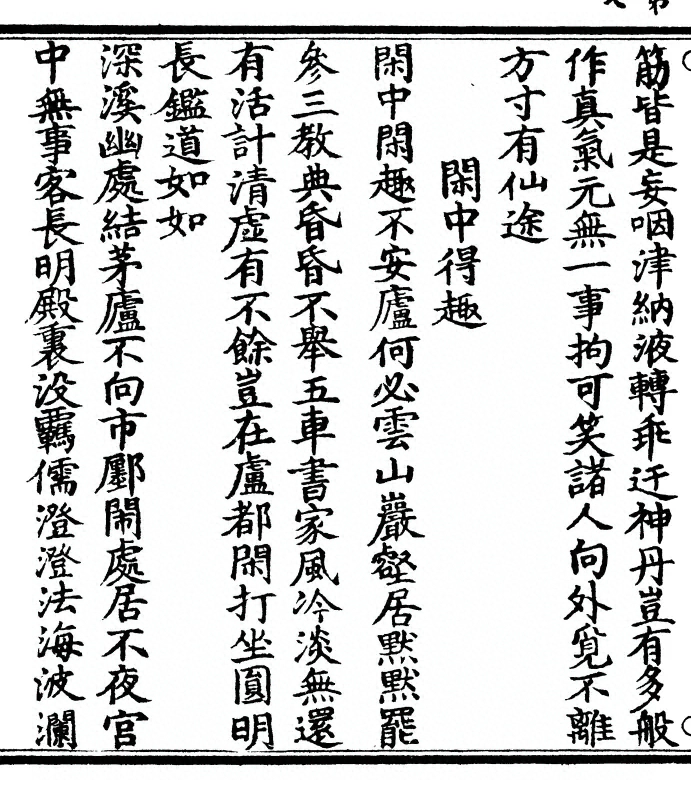 筋皆是妄咽津納液轉乖迂神丹豈有多般
作真氣元無一事拘可笑諸人向外覓不離
方寸有仙途
閑中得趣
閑中閑趣不安廬何必雲山巖壑居默默罷
參三教典昏昏不舉五車書家風冷淡無還
有活計清虛有不餘豈在盧都閑打坐圓明
長鑑道如如
深溪幽處結茅廬不向市鄽鬧處居不夜宮
中無事客長明殿裏没羈儒澄澄法海波瀾